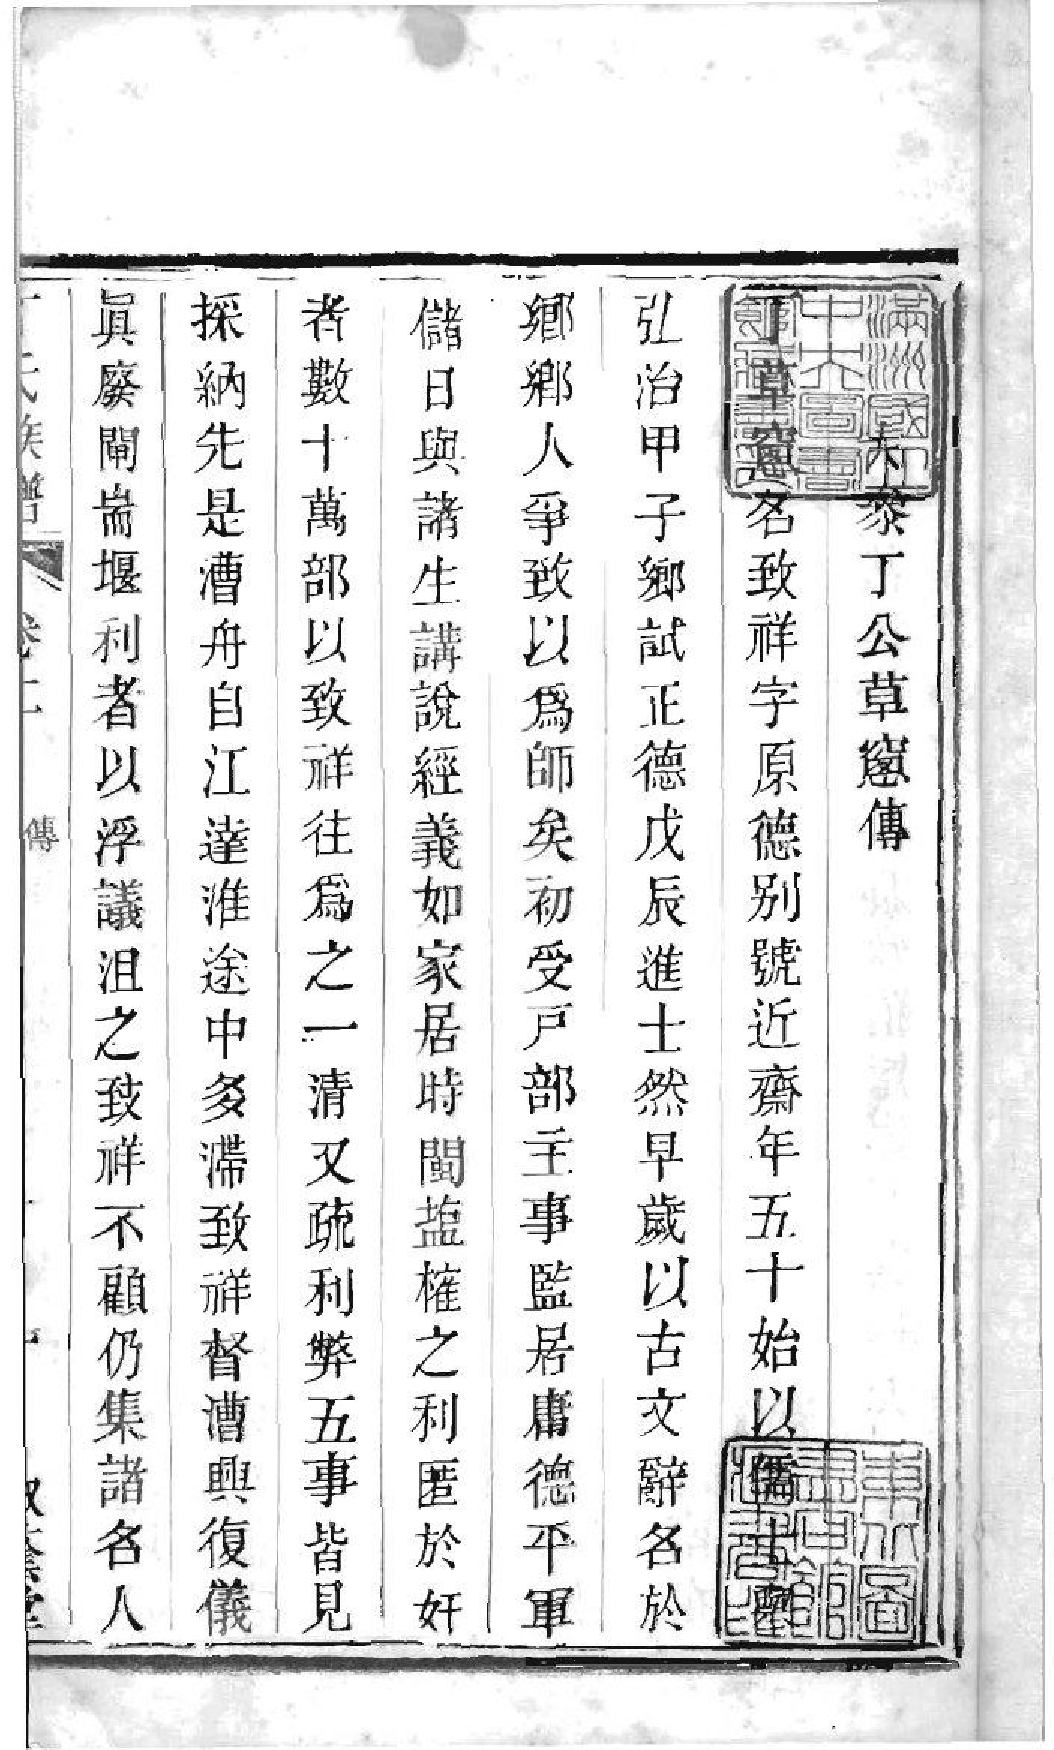 大參丁公草窻傳
丁草窻名致祥字原德別號近齋年五十始以儒士舉
弘治甲子鄉試正德戊辰進士然早歲以古文辭名於
鄉鄉人爭致以爲師矣初受戸部主事監居庸德平軍
儲日與諸生講說經義如家居時閩塩榷之利匿於奸
者數十萬部以致祥往爲之一清又疏利弊五事皆見
採納先是漕舟自江達淮途中多滯致祥督漕興復儀
眞廢閘耑堰利者以浮議沮之致祥不顧仍集諸名人
丁氏族譜 卷二 傳